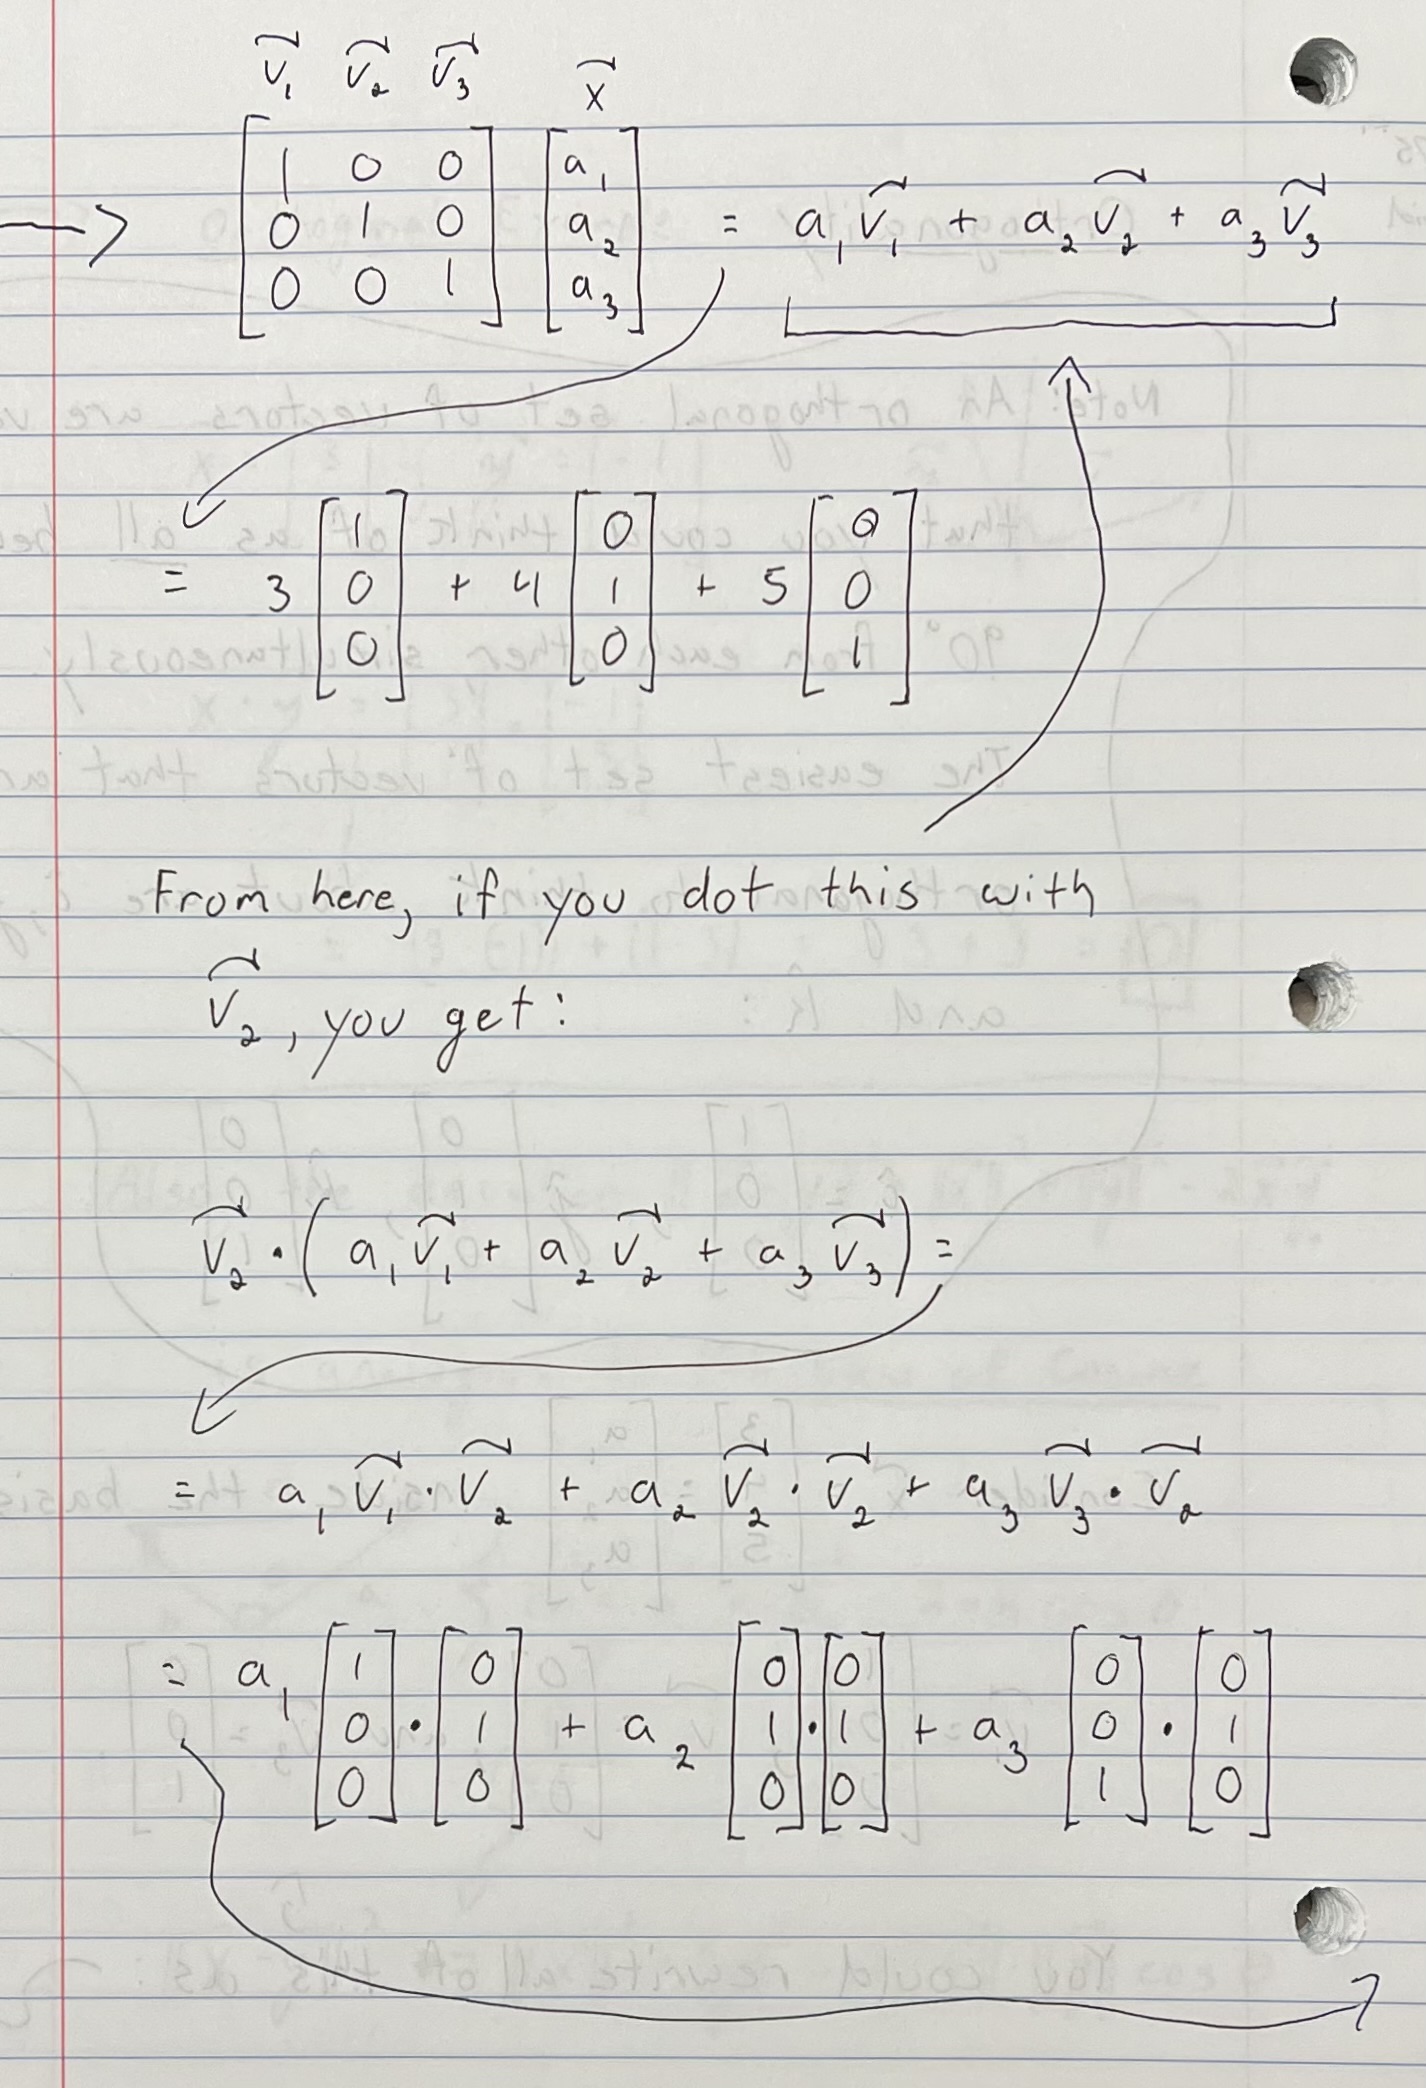 v⃗₁ v⃗₂ v⃗₃ x⃗
[1 0 0; 0 1 0; 0 0 1] [a₁; a₂; a₃] = a₁v⃗₁ + a₂v⃗₂ + a₃v⃗₃
= 3 [1; 0; 0] + 4 [0; 1; 0] + 5 [0; 0; 1]
From here, if you dot this with
v⃗₂, you get:
v⃗₂ · (a₁v⃗₁ + a₂v⃗₂ + a₃v⃗₃) =
= a₁v⃗₁ · v⃗₂ + a₂v⃗₂ · v⃗₂ + a₃v⃗₃ · v⃗₂
= a₁ [1; 0; 0] · [0; 1; 0] + a₂ [0; 1; 0] · [0; 1; 0] + a₃ [0; 0; 1] · [0; 1; 0]